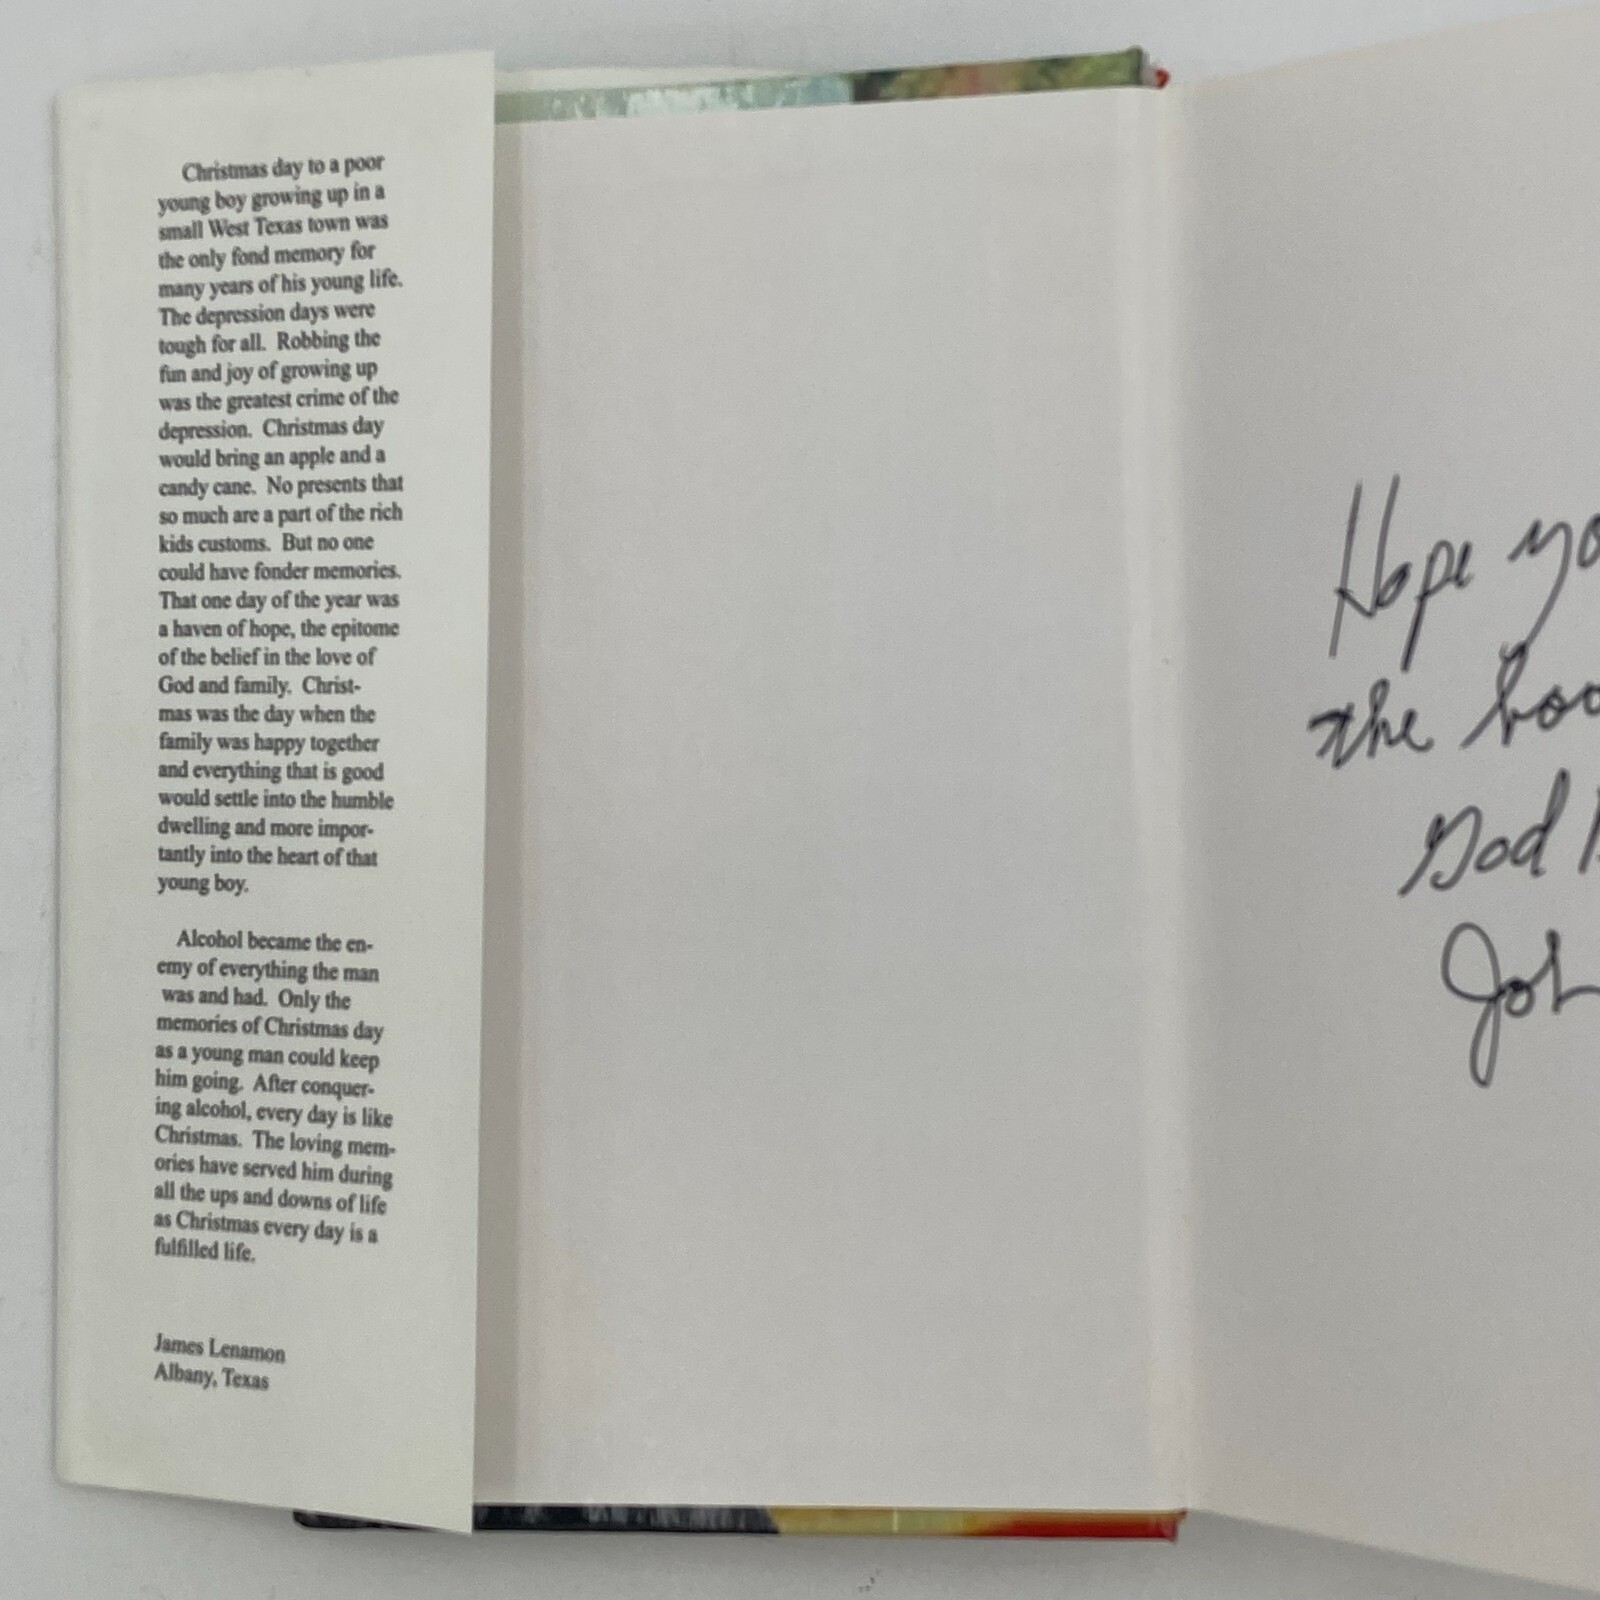 Christmas day to a poor
young boy growing up in a
small West Texas town was
the only fond memory for
many years of his young life.
The depression days were
tough for all. Robbing the
fun and joy of growing up
was the greatest crime of the
depression. Christmas day
would bring an apple and a
candy cane. No presents that
so much are a part of the rich
kids customs. But no one
could have fonder memories.
That one day of the year was
a haven of hope, the epitome
of the belief in the love of
God and family. Christ-
mas was the day when the
family was happy together
and everything that is good
would settle into the humble
dwelling and more impor-
tantly into the heart of that
young boy.
Alcohol became the en-
emy of everything the man
was and had. Only the
memories of Christmas day
as a young man could keep
him going. After conquer-
ing alcohol, every day is like
Christmas. The loving mem-
ories have served him during
all the ups and downs of life
as Christmas every day is a
fulfilled life.
James Lenamon
Albany, Texas
Hope
the
God